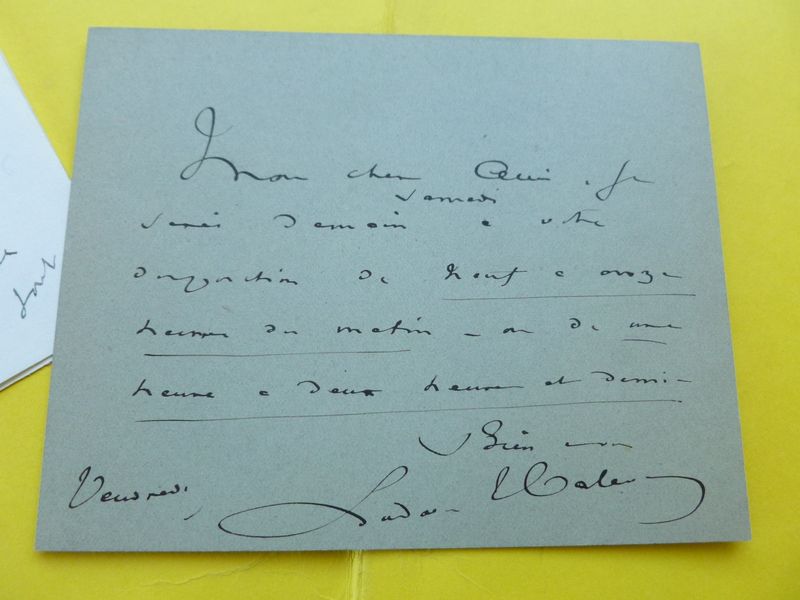 Mon cher Ami, je
samedi
serai demain à votre
disposition de neuf à onze
heures du matin – ou de une
heure à deux heures et demi –
Bien
Vendredi, Ludovic Halévy